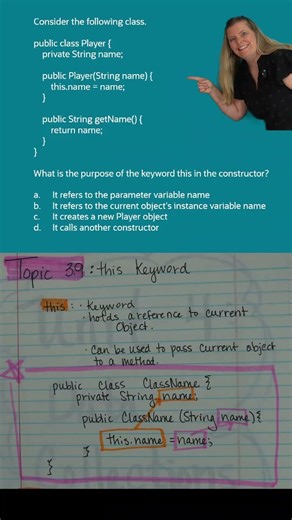 Consider the following class.
public class Player {
private String name;
public Player(String name) {
this.name = name;
}
public String getName() {
return name;
}
}
What is the purpose of the keyword this in the constructor?
a. It refers to the parameter variable name
b. It refers to the current object's instance variable name
c. It creates a new Player object
d. It calls another constructor
Topic 39: this Keyword
this: · Keyword
· holds a reference to current
Object.
· Can be used to pass current object
to a method.
public class ClassName {
private String name;
public ClassName (String name){
this.name = name;
}
}